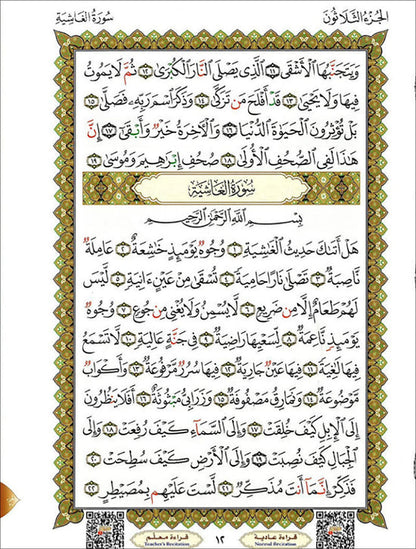 الجزء الثلاثون
سورة الغاشية
وَيَتَجَنَّبُهَا الْأَشْقَى ١١ الَّذِي يَصْلَى النَّارَ الْكُبْرَىٰ ١٢ ثُمَّ لَا يَمُوتُ
فِيهَا وَلَا يَحْيَىٰ ١٣ قَدْ أَفْلَحَ مَن تَزَكَّىٰ ١٤ وَذَكَرَ اسْمَ رَبِّهِ فَصَلَّىٰ ١٥
بَلْ تُؤْثِرُونَ الْحَيَوٰةَ الدُّنْيَا ١٦ وَالْآخِرَةُ خَيْرٌ وَأَبْقَىٰ ١٧ إِنَّ
هَٰذَا لَفِي الصُّحُفِ الْأُولَىٰ ١٨ صُحُفِ إِبْرَٰهِيمَ وَمُوسَىٰ ١٩
سورة الغاشية
بِسْمِ اللَّهِ الرَّحْمَٰنِ الرَّحِيمِ
هَلْ أَتَىٰكَ حَدِيثُ الْغَٰشِيَةِ ١ وُجُوهٌ يَوْمَئِذٍ خَٰشِعَةٌ ٢ عَامِلَةٌ
نَّاصِبَةٌ ٣ تَصْلَىٰ نَارًا حَامِيَةً ٤ تُسْقَىٰ مِنْ عَيْنٍ ءَانِيَةٍ ٥ لَّيْسَ
لَهُمْ طَعَامٌ إِلَّا مِن ضَرِيعٍ ٦ لَّا يُسْمِنُ وَلَا يُغْنِي مِن جُوعٍ ٧ وُجُوهٌ
يَوْمَئِذٍ نَّاعِمَةٌ ٨ لِّسَعْيِهَا رَاضِيَةٌ ٩ فِي جَنَّةٍ عَالِيَةٍ ١٠ لَّا تَسْمَعُ
فِيهَا لَٰغِيَةً ١١ فِيهَا عَيْنٌ جَارِيَةٌ ١٢ فِيهَا سُرُرٌ مَّرْفُوعَةٌ ١٣ وَأَكْوَابٌ
مَّوْضُوعَةٌ ١٤ وَنَمَارِقُ مَصْفُوفَةٌ ١٥ وَزَرَابِيُّ مَبْثُوثَةٌ ١٦ أَفَلَا يَنظُرُونَ
إِلَى الْإِبِلِ كَيْفَ خُلِقَتْ ١٧ وَإِلَى السَّمَاءِ كَيْفَ رُفِعَتْ ١٨ وَإِلَى
الْجِبَالِ كَيْفَ نُصِبَتْ ١٩ وَإِلَى الْأَرْضِ كَيْفَ سُطِحَتْ ٢٠
فَذَكِّرْ إِنَّمَا أَنتَ مُذَكِّرٌ ٢١ لَّسْتَ عَلَيْهِم بِمُصَيْطِرٍ ٢٢
قراءة معلم
Teacher's Recitation
١٢
قراءة عادية
Normal Recitation